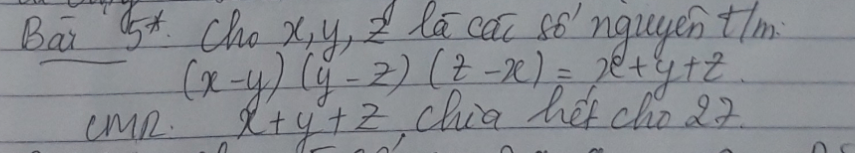 Bài 5*. Cho x, y, z là các số nguyên t/m:
(x-y)(y-z)(z-x) = x+y+z.
CMR. x+y+z chia hết cho 27.